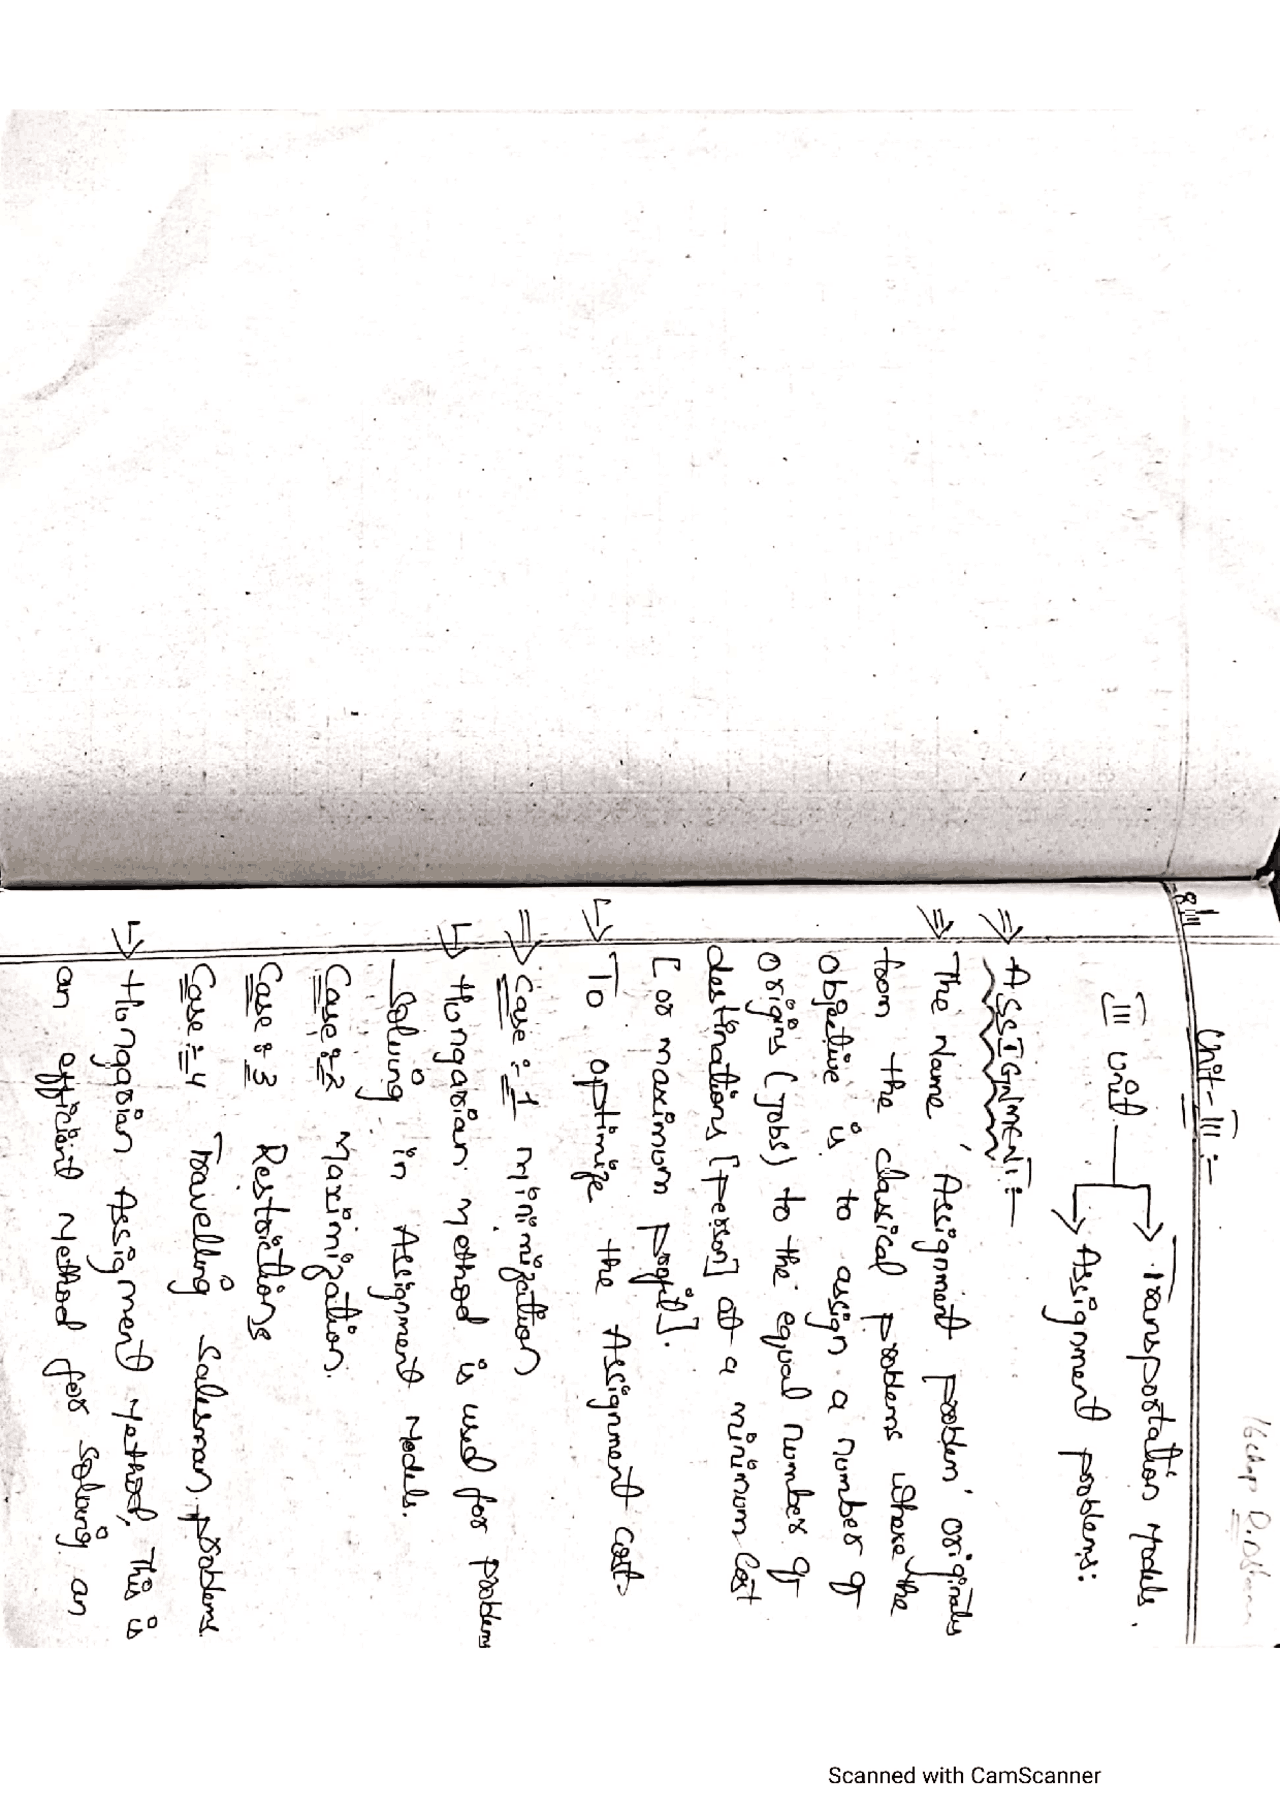 Unit-III :-
III unit
Transportation Models.
Assignment problems:
⇒ ASSIGNMENT:-
⇒ The Name 'Assignment problem' originates
from the classical problems where the
objective is to assign a number of
origins (Jobs) to the equal number of
destinations [person] at a minimum cost
[or maximum profit].
↳ To optimize the Assignment cost
⇒ Case :- 1 Minimization
↳ Hungarian Method is used for problems
solving in Assignment Models.
Case :- 2 Maximization.
Case :- 3 Restrictions
Case :- 4 Travelling Salesman problems
↳ Hungarian Assignment Method, This is
an efficient Method for solving an
Scanned with CamScanner